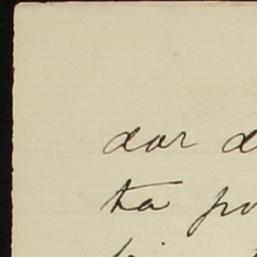 dar d
ta po